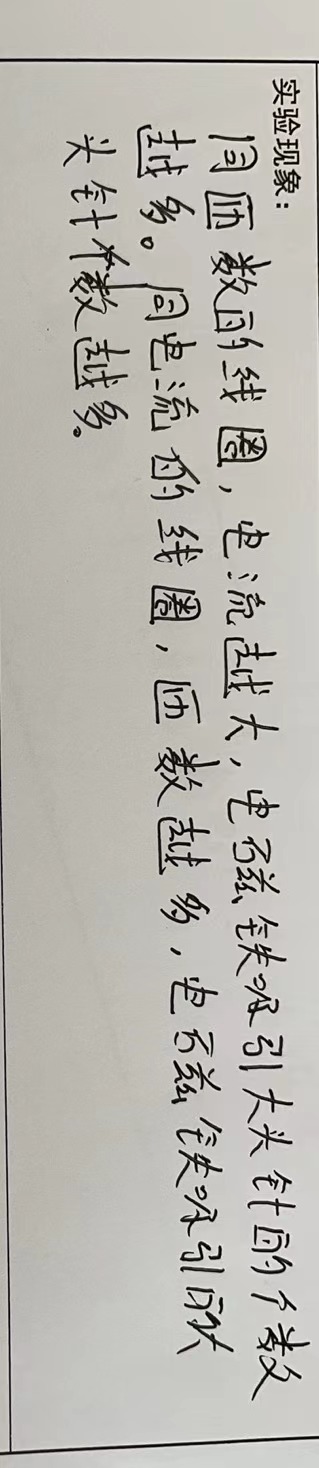 实验现象：
同匝数的线圈，电流越大，电磁铁吸引大头针的个数
越多。同电流的线圈，匝数越多，电磁铁吸引的大
头针个数越多。